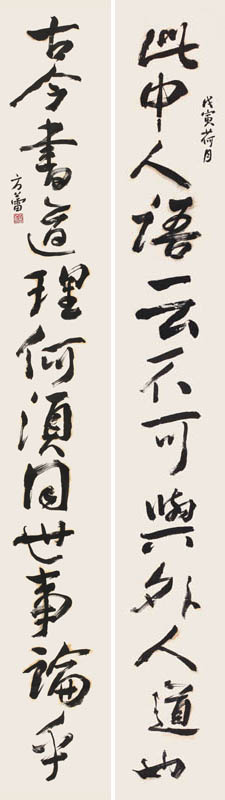 戊寅荷月
此中人語云不可與外人道也
古今書道理何須同世事論乎
方蕾